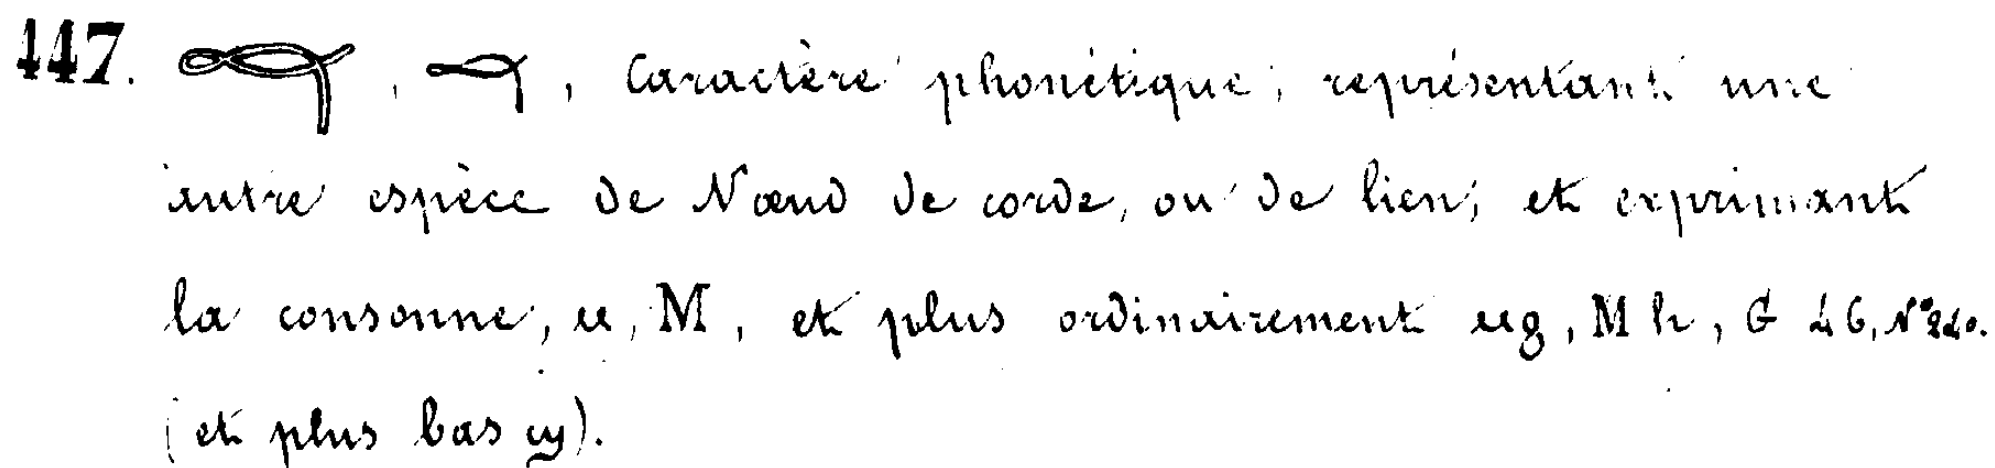 447. , , Caractère phonétique, représentant une
autre espèce de Nœud de corde, ou de lien; et exprimant
la consonne, ⲙ, M, et plus ordinairement ⲙϩ, Mh, G 46, Nº 240.
(et plus bas ϣ).